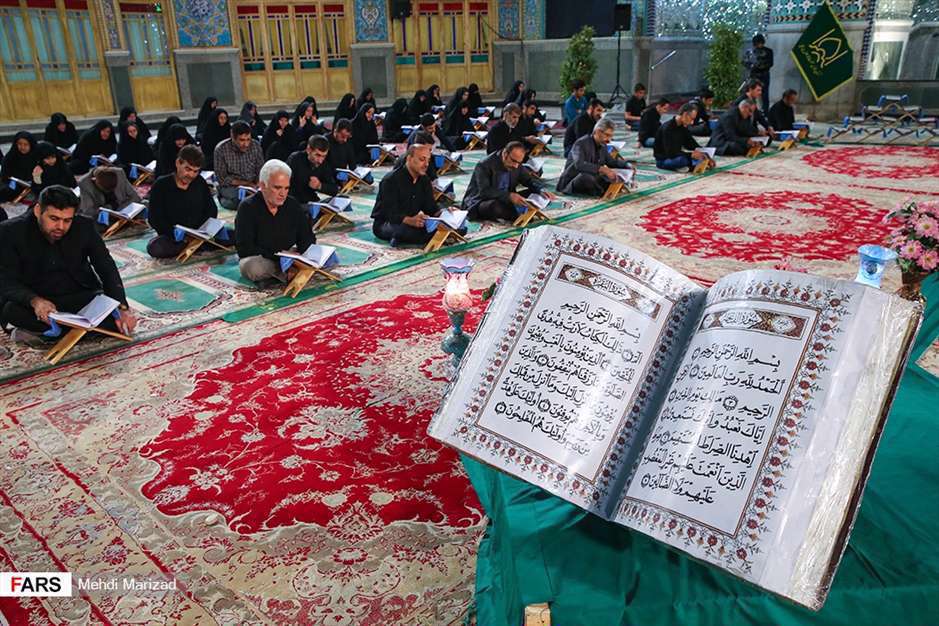 بِسْمِ اللَّهِ الرَّحْمَنِ الرَّحِيمِ
الْحَمْدُ لِلَّهِ رَبِّ الْعَالَمِينَ ۝ الرَّحْمَنِ
الرَّحِيمِ ۝ مَالِكِ يَوْمِ الدِّينِ ۝
إِيَّاكَ نَعْبُدُ وَإِيَّاكَ نَسْتَعِينُ ۝
اهْدِنَا الصِّرَاطَ الْمُسْتَقِيمَ ۝ صِرَاطَ
الَّذِينَ أَنْعَمْتَ عَلَيْهِمْ غَيْرِ الْمَغْضُوبِ
عَلَيْهِمْ وَلَا الضَّالِّينَ ۝
سُورَةُ الْبَقَرَةِ
بِسْمِ اللَّهِ الرَّحْمَنِ الرَّحِيمِ
الم ۝ ذَلِكَ الْكِتَابُ لَا رَيْبَ فِيهِ هُدًى
لِلْمُتَّقِينَ ۝ الَّذِينَ يُؤْمِنُونَ بِالْغَيْبِ وَيُقِيمُونَ
الصَّلَاةَ وَمِمَّا رَزَقْنَاهُمْ يُنْفِقُونَ ۝ وَالَّذِينَ
يُؤْمِنُونَ بِمَا أُنْزِلَ إِلَيْكَ وَمَا أُنْزِلَ مِنْ قَبْلِكَ
وَبِالْآخِرَةِ هُمْ يُوقِنُونَ ۝ أُولَئِكَ عَلَى هُدًى
مِنْ رَبِّهِمْ وَأُولَئِكَ هُمُ الْمُفْلِحُونَ ۝
FARS Mehdi Marizad